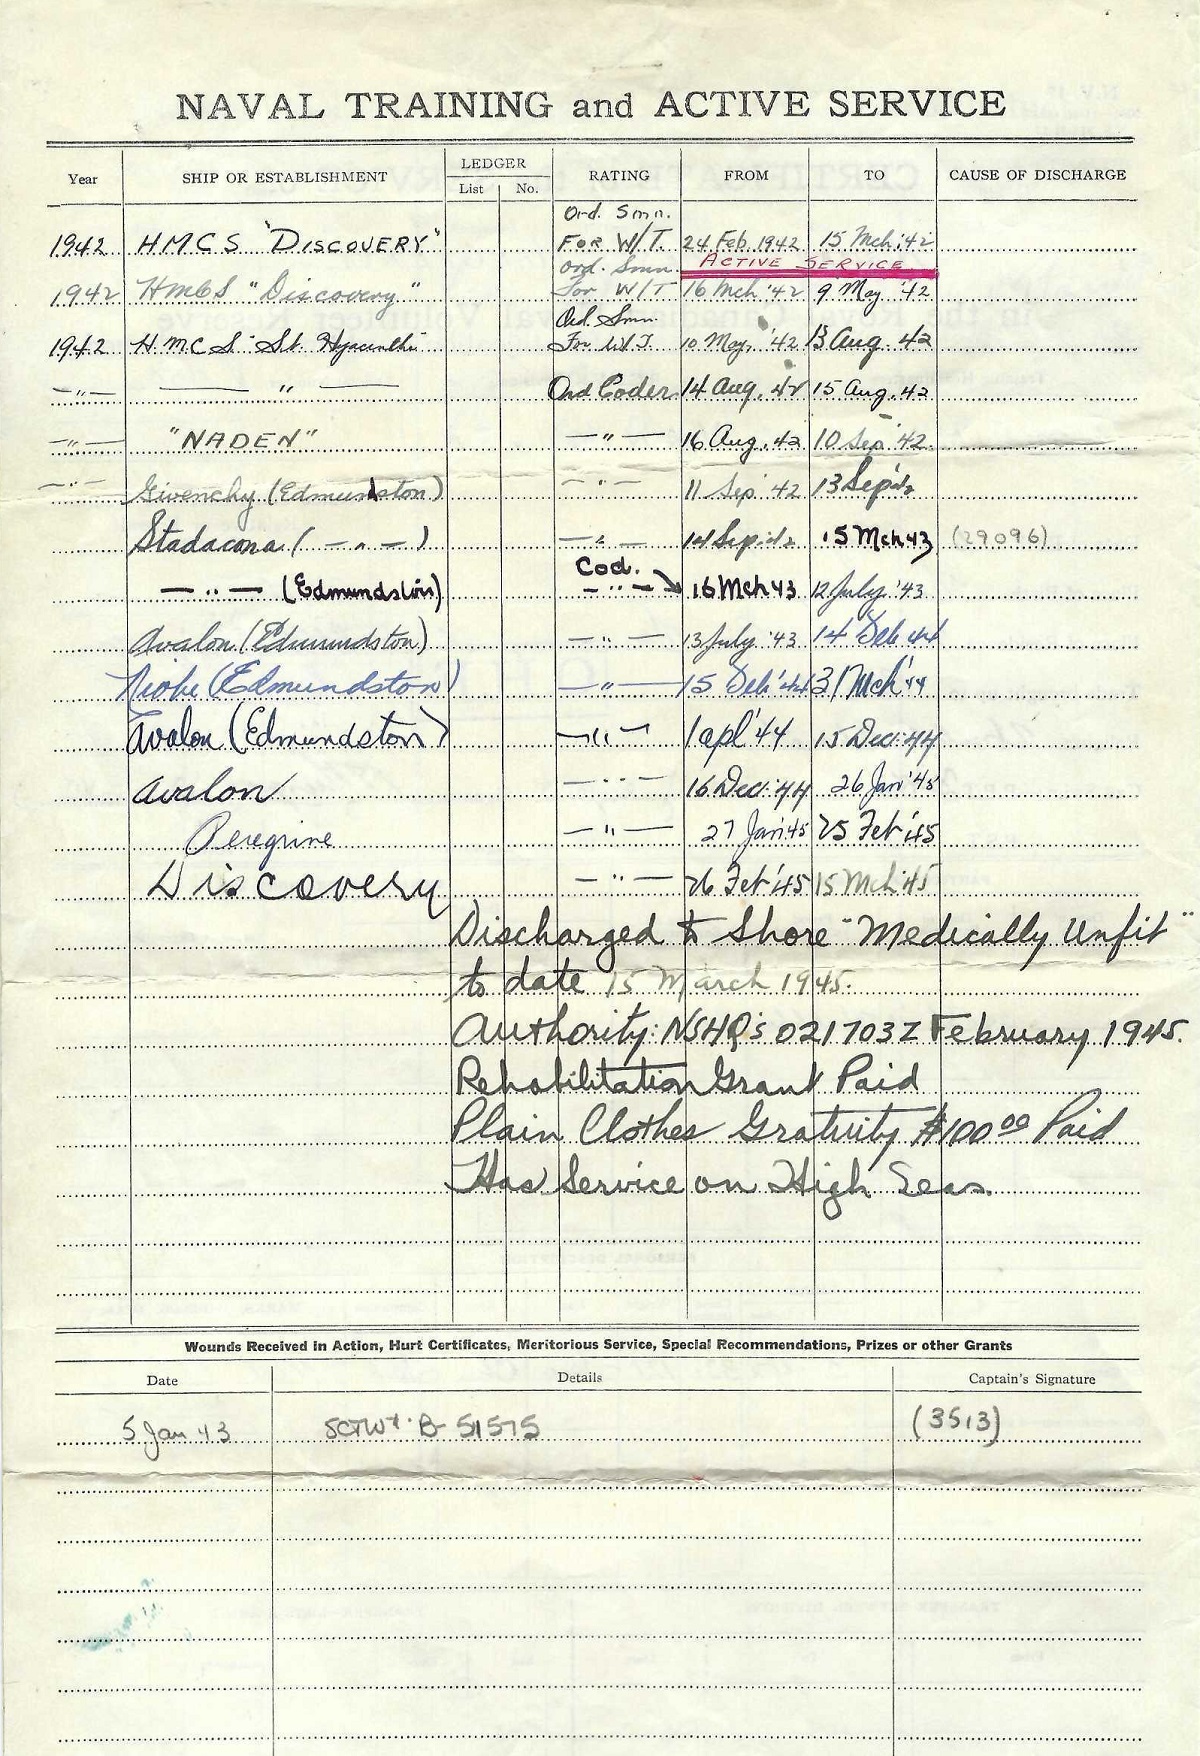 NAVAL TRAINING and ACTIVE SERVICE
Year SHIP OR ESTABLISHMENT LEDGER List No. RATING FROM TO CAUSE OF DISCHARGE
1942 HMCS "DISCOVERY" Ord. Smn. FOR W/T. 24 Feb 1942 15 Mch '42
ACTIVE SERVICE
1942 HMCS "Discovery" Ord. Smn. For W/T 16 Mch '42 9 May '42
1942 H.M.C.S "St. Hyacinthe" Ord. Smn. For W/T. 10 May, '42 13 Aug. 42
— " — — " — Ord Coder 14 Aug. 42 15 Aug. 42
— " — "NADEN" — " — 16 Aug. 42 10 Sep '42.
— " — Givenchy (Edmundston) — " — 11 Sep '42 13 Sep '42
Stadacona ( — " — ) — " — 14 Sep. 42 15 Mch 43 (29096)
— " — (Edmundston) Cod. — " — 16 Mch 43 12 July '43
Avalon (Edmundston) — " — 13 July '43 14 Feb 44
Niobe (Edmundston) — " — 15 Feb '44 31 Mch '44
Avalon (Edmundston) — " — 1 Apl '44 15 Dec. 44
Avalon — " — 16 Dec. 44 26 Jan '45
Peregrine — " — 27 Jan '45 25 Feb '45
Discovery — " — 26 Feb '45 15 Mch '45
Discharged to Shore "Medically Unfit"
to date 15 March 1945.
Authority: NSHQ's 021703Z February 1945.
Rehabilitation Grant Paid
Plain Clothes Gratuity $100.00 Paid
Has Service on High Seas.
Wounds Received in Action, Hurt Certificates, Meritorious Service, Special Recommendations, Prizes or other Grants
Date Details Captain's Signature
5 Jan 43 B- 51575 (3513)